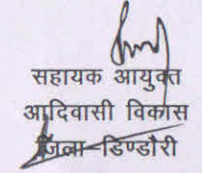 सहायक आयुक्त
आदिवासी विकास
जिला-डिण्डौरी